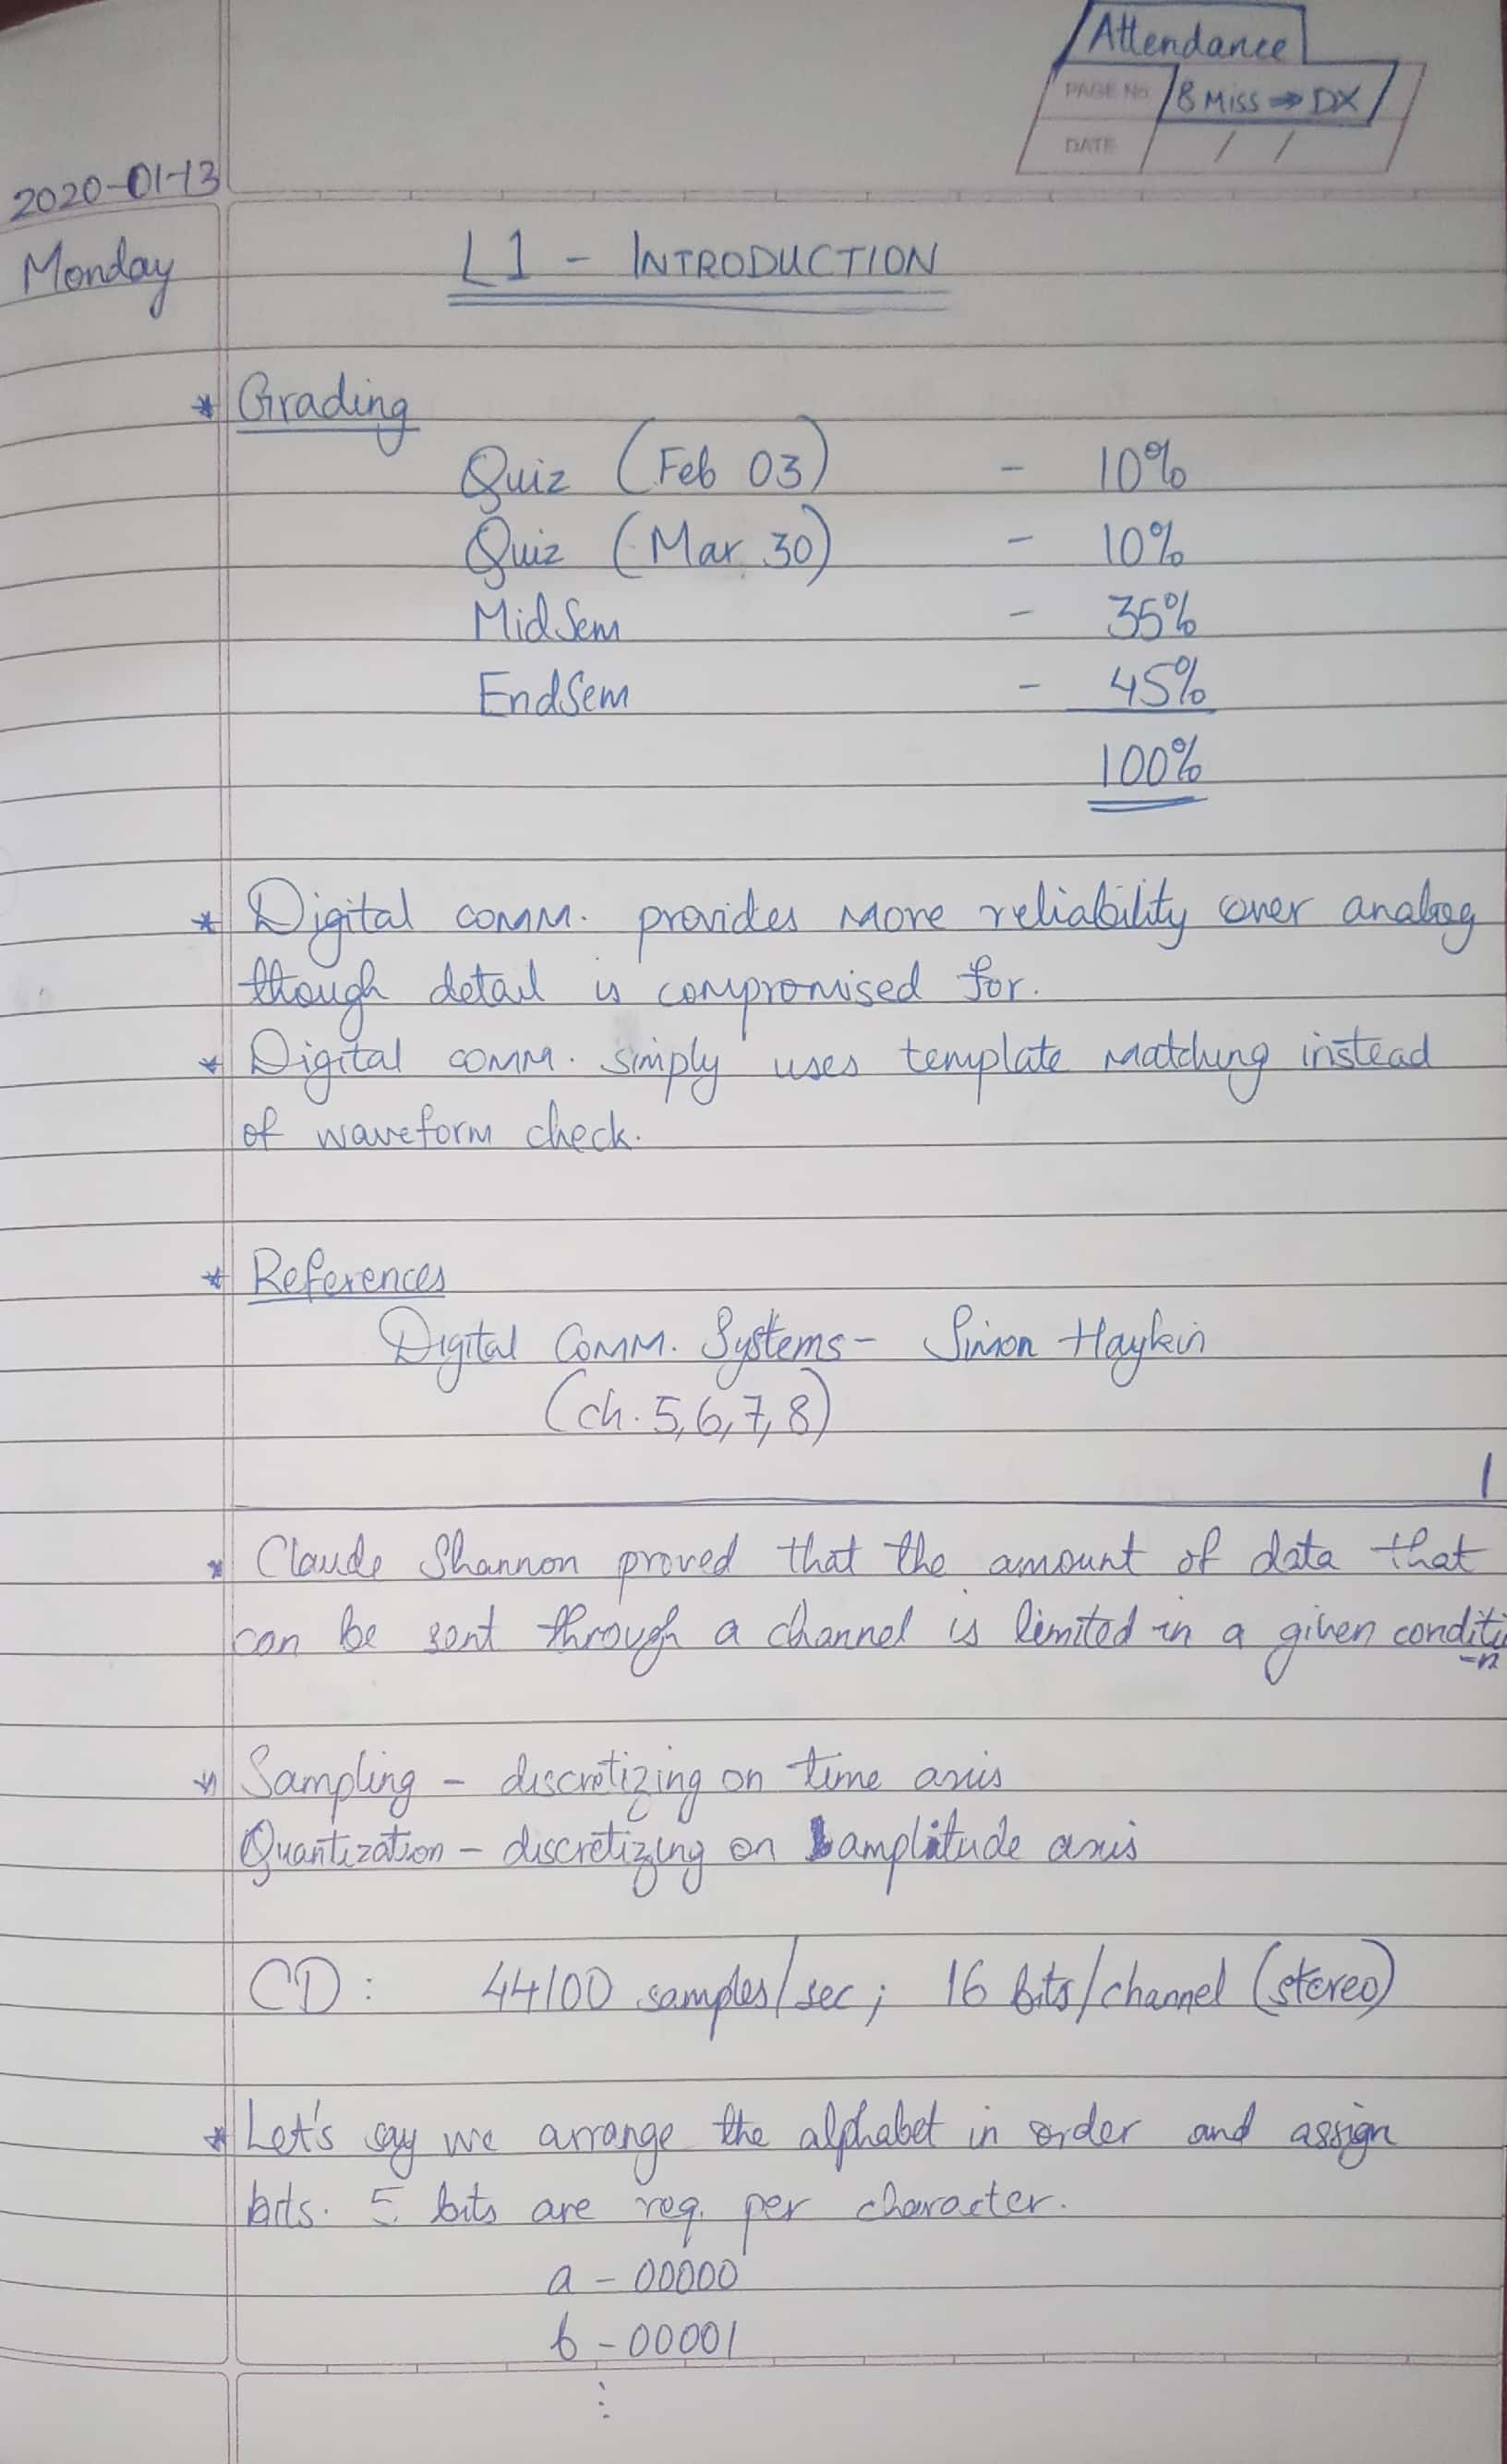 Attendance
PAGE No. 8 Miss ⇒ DX
DATE / /
2020-01-13
Monday
L1 - INTRODUCTION
* Grading
Quiz (Feb 03) - 10%
Quiz (Mar 30) - 10%
MidSem - 35%
EndSem - 45%
100%
* Digital comm. provides more reliability over analog
though detail is compromised for.
* Digital comm. simply uses template matching instead
of waveform check.
* References
Digital Comm. Systems - Simon Haykin
(ch. 5, 6, 7, 8)
1
* Claude Shannon proved that the amount of data that
can be sent through a channel is limited in a given conditi
-n
* Sampling - discretizing on time axis
Quantization - discretizing on amplitude axis
CD: 44100 samples/sec; 16 bits/channel (stereo)
* Let's say we arrange the alphabet in order and assign
bits. 5 bits are req. per character.
a - 00000
b - 00001
⋮